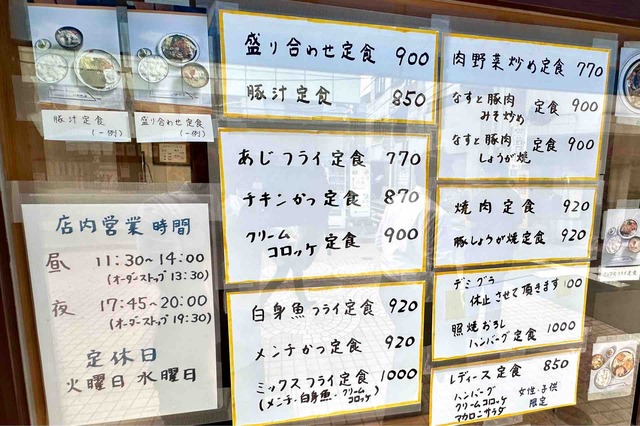 豚汁定食
(一例)
盛り合わせ定食
(一例)
店内営業時間
昼 11:30~14:00
(オーダーストップ13:30)
夜 17:45~20:00
(オーダーストップ19:30)
定休日
火曜日 水曜日
盛り合わせ定食 900
豚汁定食 850
あじフライ定食 770
チキンかつ定食 870
クリームコロッケ定食 900
白身魚フライ定食 920
メンチかつ定食 920
ミックスフライ定食 1000
(メンチ・白身魚・クリームコロッケ)
肉野菜炒め定食 770
なすと豚肉みそ炒め定食 900
なすと豚肉しょうが焼定食 900
焼肉定食 920
豚しょうが焼定食 920
デミグラ
休止させて頂きます 00
照焼おろしハンバーグ定食 1000
レディース定食 850
ハンバーグ
クリームコロッケ
マカロニサラダ
女性・子供
限定